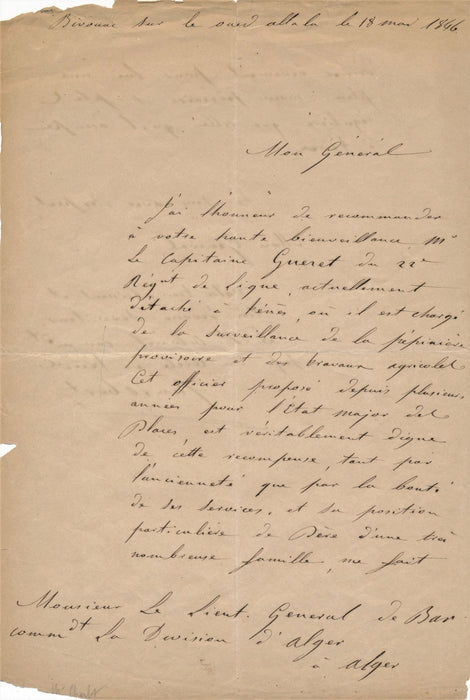 Bivouac sur le oued allala le 18 mai 1846
Mon Général
J'ai l'honneur de recommander
à votre haute bienveillance, Mr
Le Capitaine Gueret du 22e
Régnt de Ligne, actuellement
détaché à ténès, ou il est chargé
de la surveillance de la pépinière
provisoire et des travaux agricoles
Cet officier proposé depuis plusieurs
années pour l'Etat major des
Places est véritablement digne
de cette recompense, tant par
l'ancienneté que par la bonté
de ses services, et sa position
particulière de Père d'une très
nombreuse famille, me fait
Monsieur Le Lieut. General de Bar
commdt La Division d'alger
à alger